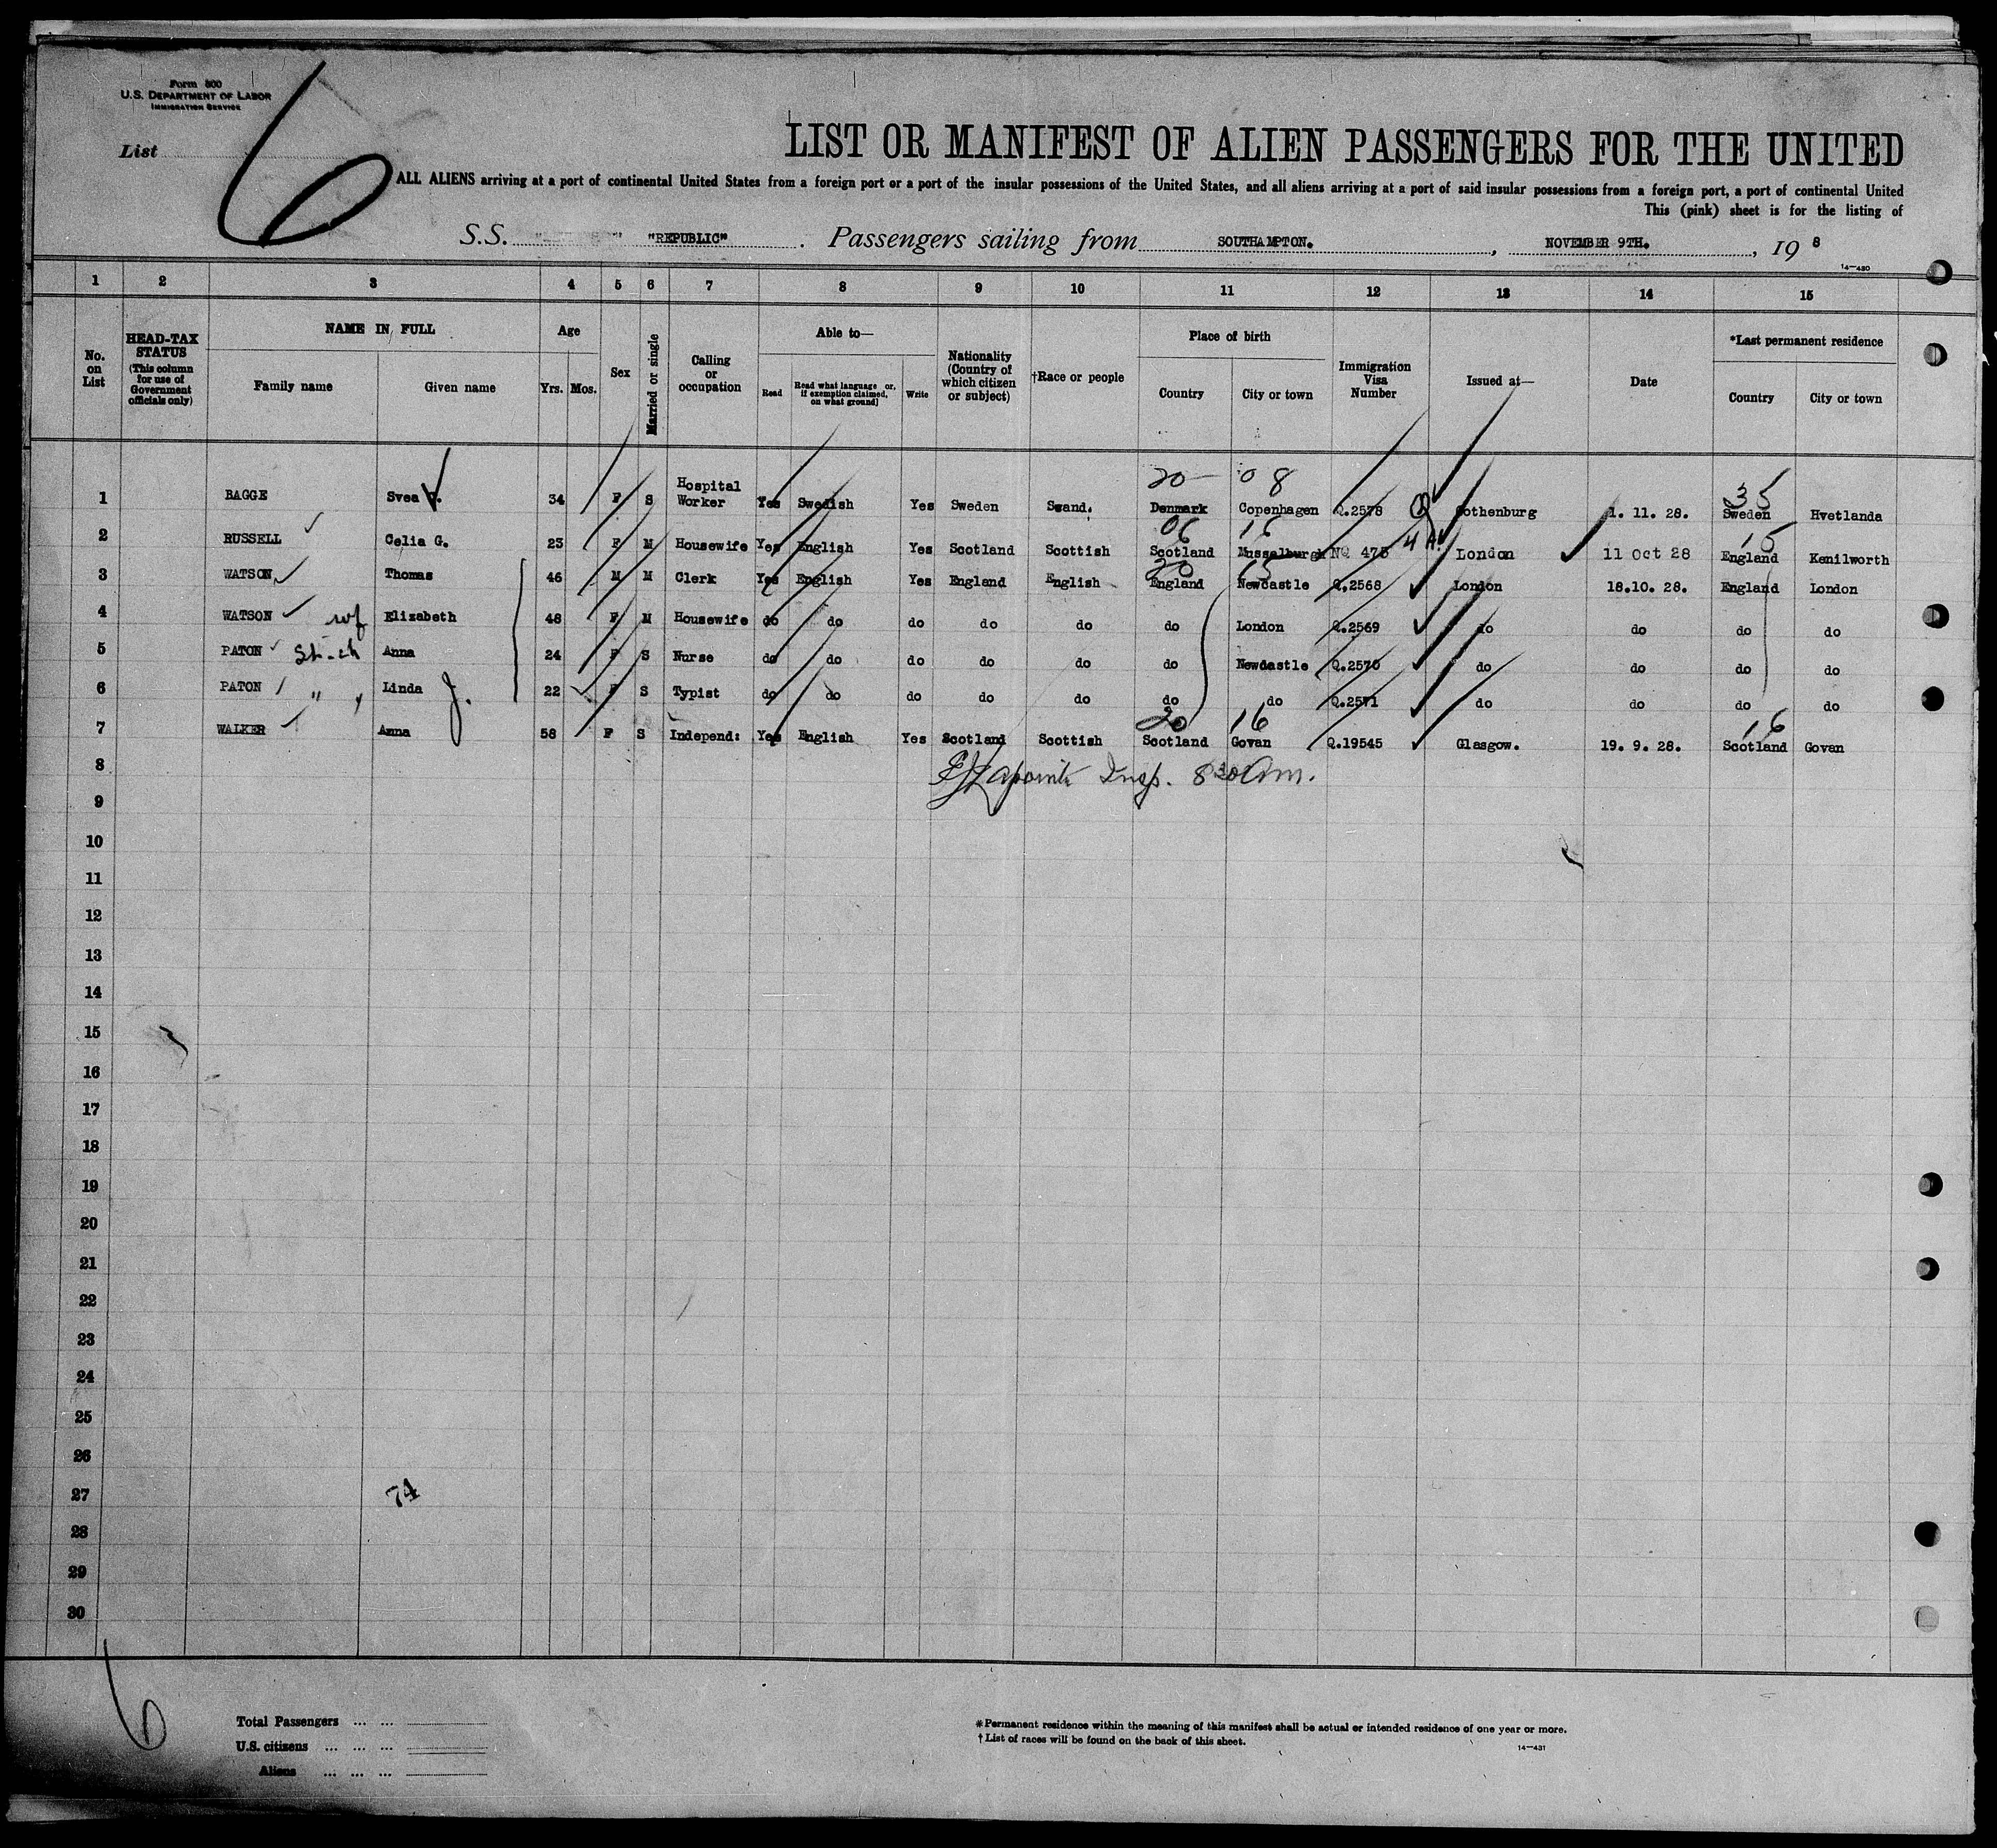 Form 500
U.S. DEPARTMENT OF LABOR
IMMIGRATION SERVICE
List 6
LIST OR MANIFEST OF ALIEN PASSENGERS FOR THE UNITED
ALL ALIENS arriving at a port of continental United States from a foreign port or a port of the insular possessions of the United States, and all aliens arriving at a port of said insular possessions from a foreign port, a port of continental United
This (pink) sheet is for the listing of
S.S. "REPUBLIC" . Passengers sailing from SOUTHAMPTON. , NOVEMBER 9TH. , 19 8
14—430
1 2 3 4 5 6 7 8 9 10 11 12 13 14 15
No. on List
HEAD-TAX STATUS (This column for use of Government officials only)
NAME IN FULL
Family name Given name
Age
Yrs. Mos.
Sex
Married or single
Calling or occupation
Able to—
Read Read what language or, if exemption claimed, on what ground] Write
Nationality (Country of which citizen or subject)
†Race or people
Place of birth
Country City or town
Immigration Visa Number
Issued at—
Date
*Last permanent residence
Country City or town
20 08 35
1 BAGGE Svea 34 F S Hospital Worker Yes Swedish Yes Sweden Scand. Denmark Copenhagen Q.2578 Gothenburg 1. 11. 28. Sweden Hvetlanda
06 16 4 15
2 RUSSELL Celia G. 23 F M Housewife Yes English Yes Scotland Scottish Scotland Musselburgh NQ 475 London 11 Oct 28 England Kenilworth
20 15
3 WATSON Thomas 46 M M Clerk Yes English Yes England English England Newcastle Q.2568 London 18.10. 28. England London
4 WATSON wf Elizabeth 48 F M Housewife do do do do do do London Q.2569 do do do do
5 PATON St-ch Anna 24 F S Nurse do do do do do do Newcastle Q.2570 do do do do
6 PATON " " Linda J. 22 F S Typist do do do do do do do Q.2571 do do do do
20 16 16
7 WALKER Anna 58 F S Independ: Yes English Yes Scotland Scottish Scotland Govan Q.19545 Glasgow. 19. 9. 28. Scotland Govan
8 Lapointe Insp. 8 30 Am.
9
10
11
12
13
14
15
16
17
18
19
20
21
22
23
24
25
26
27 74
28
29
30
6
Total Passengers ... ...
U.S. citizens ... ... ...
Aliens ... ... ...
*Permanent residence within the meaning of this manifest shall be actual or intended residence of one year or more.
†List of races will be found on the back of this sheet.
14—431